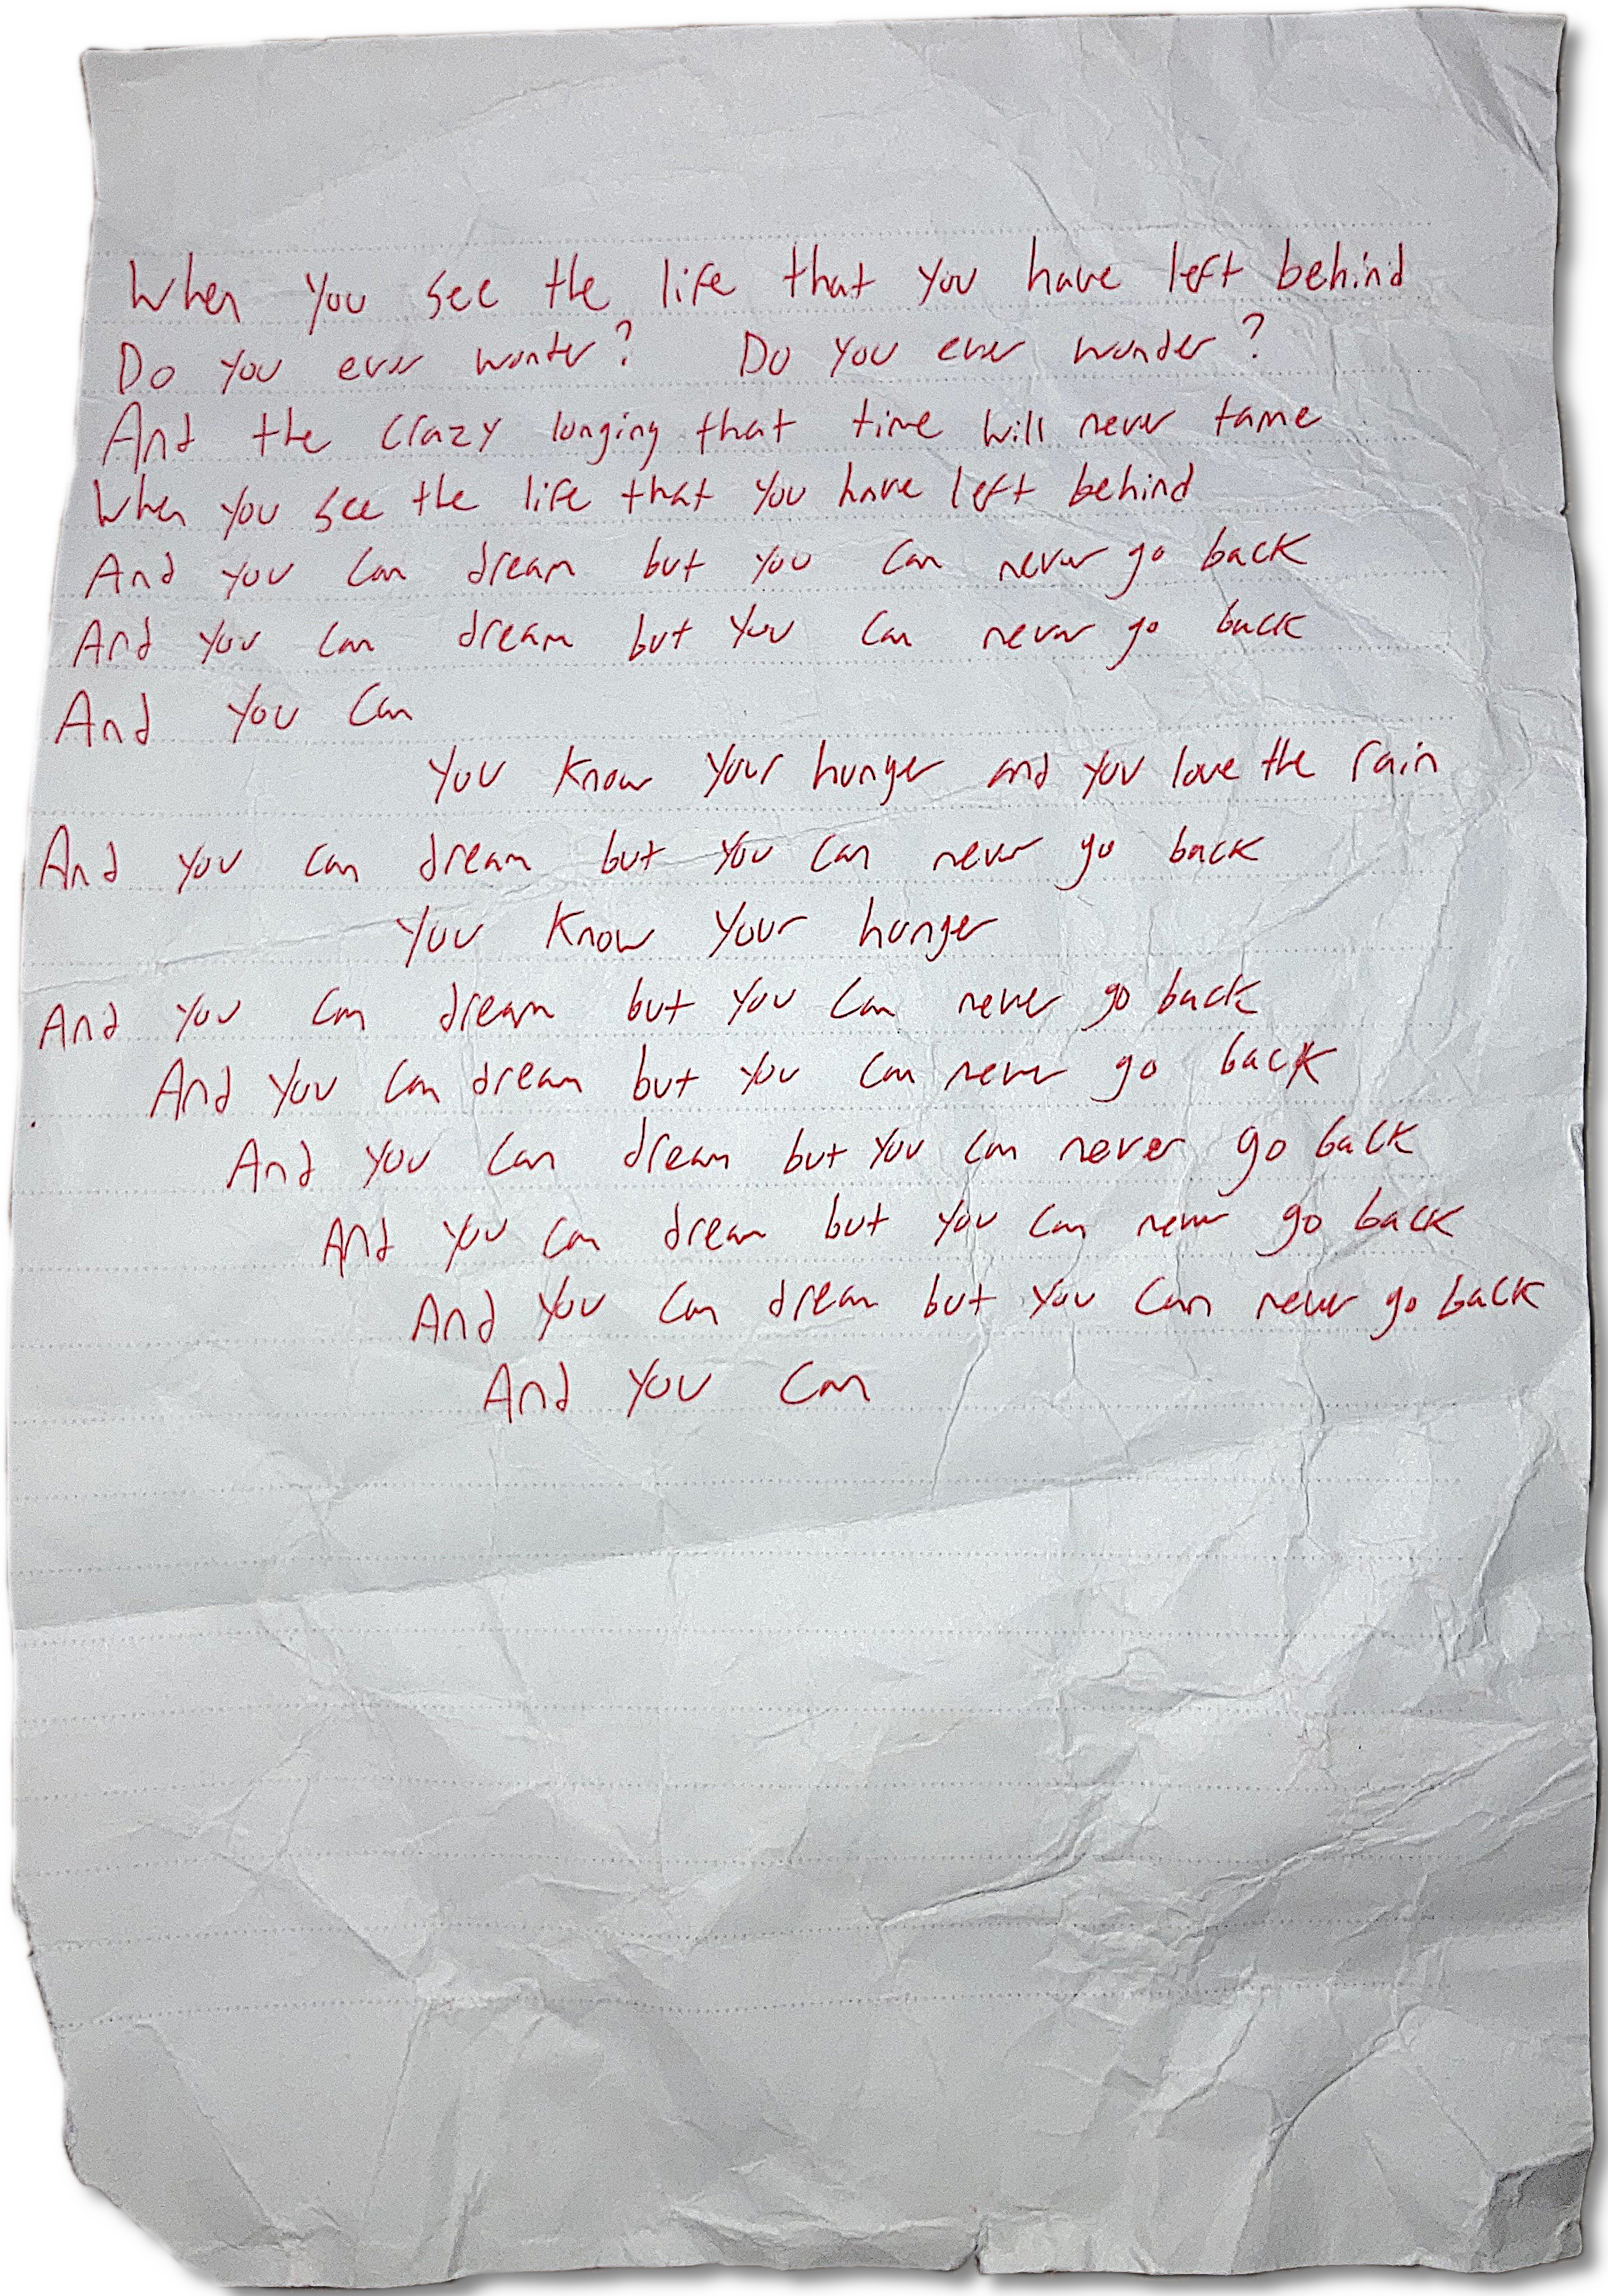 When you see the life that you have left behind
Do you ever wonder? Do you ever wonder?
And the crazy longing that time will never tame
When you see the life that you have left behind
And you can dream but you can never go back
And you can dream but you can never go back
And you can
You know your hunger and you love the rain
And you can dream but you can never go back
You know your hunger
And you can dream but you can never go back
And you can dream but you can never go back
And you can dream but you can never go back
And you can dream but you can never go back
And you can dream but you can never go back
And you can